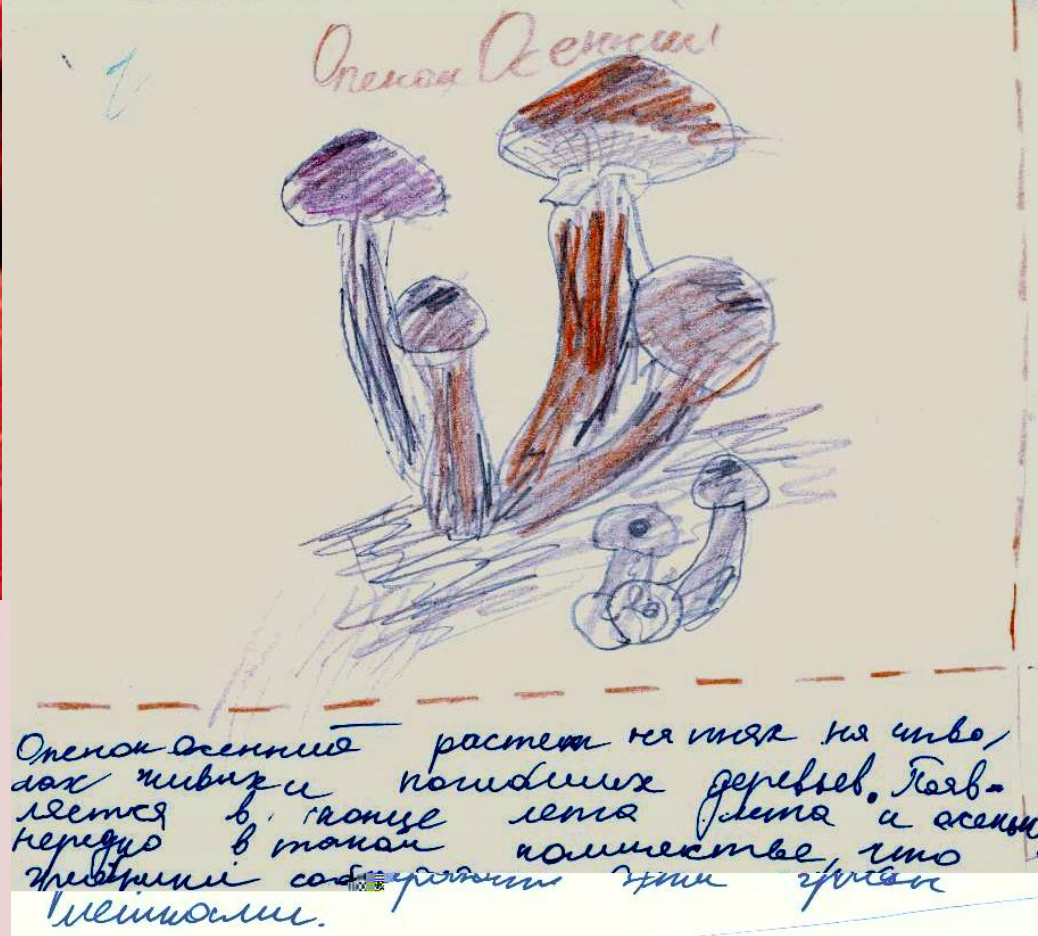 Опенок Осенний
Опенок осенний растет на пнях на ство/
лах живых и погибших деревьев. Появ-
ляется в конце лета лета и осенью
нередко в таком количестве, что
грибники собирают эти грибы
мешками.